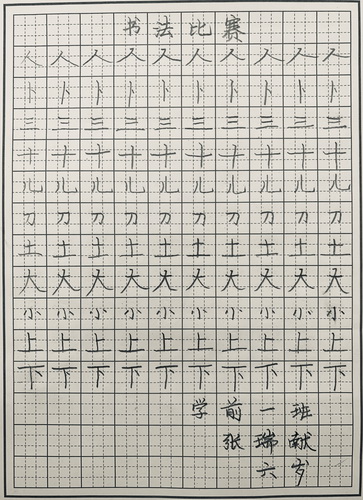 书法比赛
人人人人人人人人人人
卜卜卜卜卜卜卜卜卜卜
三三三三三三三三三三
十十十十十十十十十十
儿儿儿儿儿儿儿儿儿儿
刀刀刀刀刀刀刀刀刀刀
土土土土土土土土土土
大大大大大大大大大大
小小小小小小小小小小
上上上上上上上上上上
下下下下下下下下下下
学前一班
张瑞献
六岁